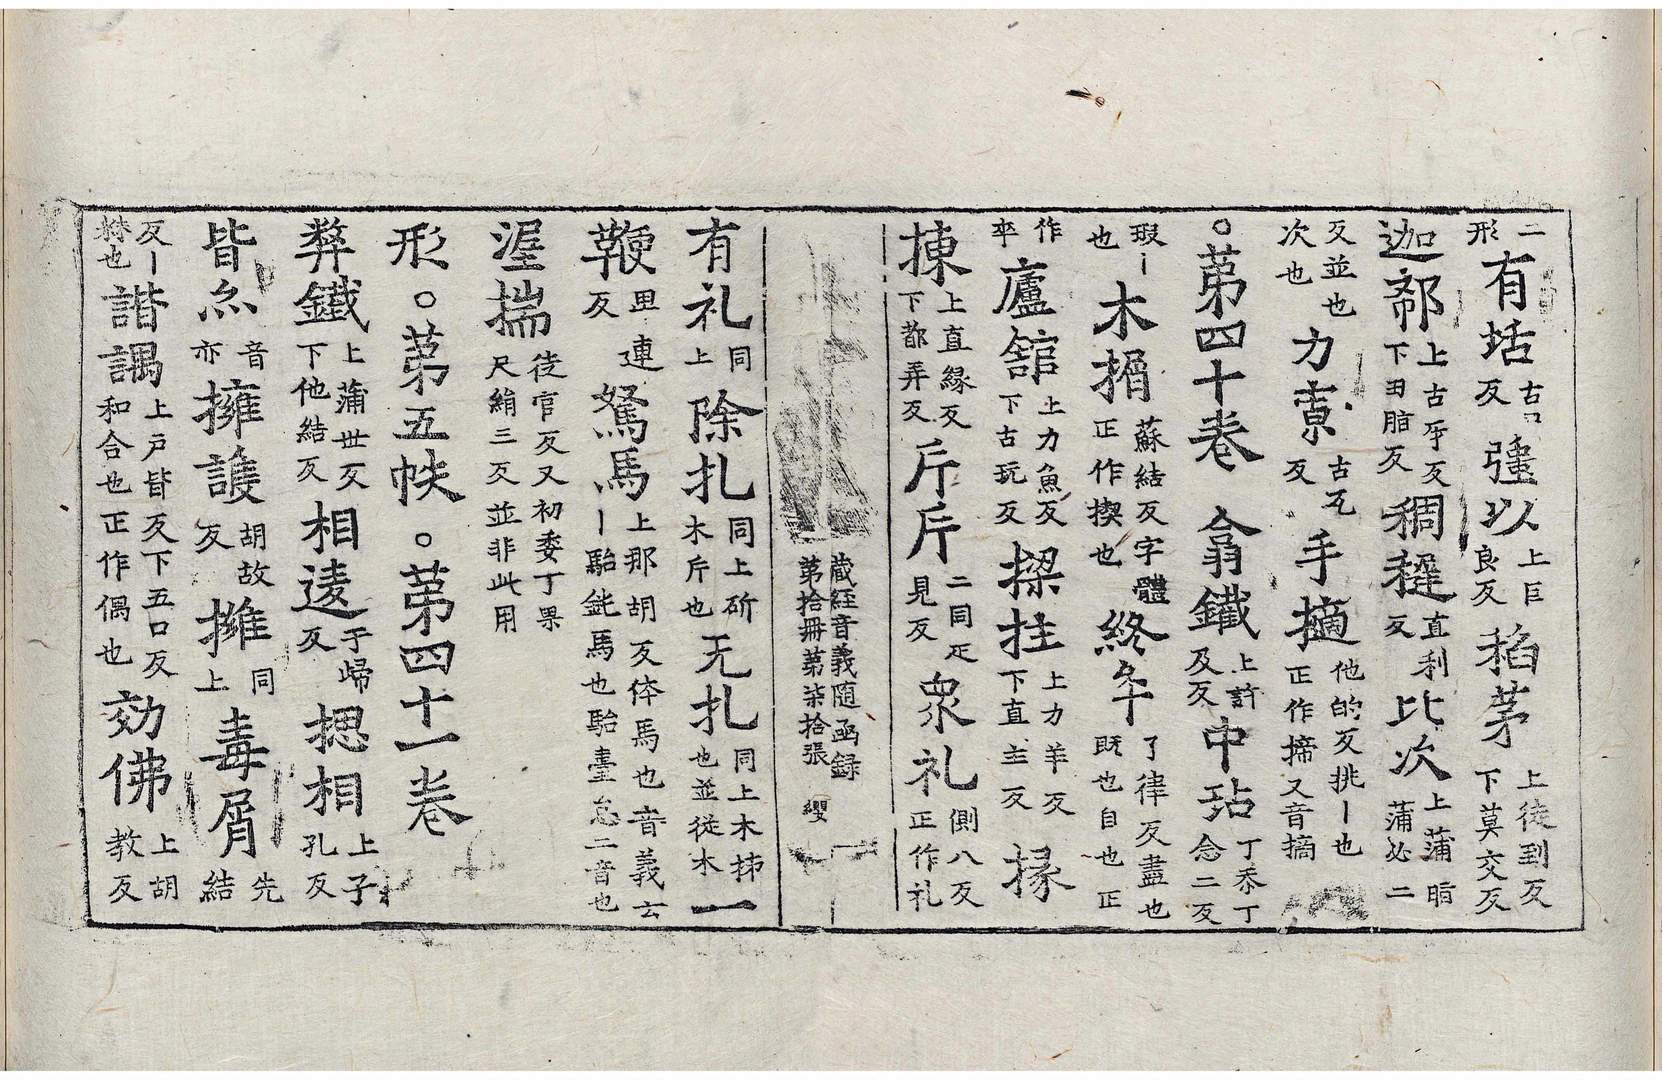 二形有𡊣古口反彊以上巨良反稻茅上徒到反下莫交反
迦郗上古牙反下丑脂反稠穉直利反比次上蒲脂蒲必二
反並也次也力古瓦反手擿他的反挑丨也正作擿又音摘
。苐四十卷翕鐵上許及反中玷丁忝丁念二反
瑕丨也木揟蘇結反字體正作揳也終年了律反盡也既也自也正
作卒廬舘上力魚反下古玩反樑拄上力羊反下直主反掾
揀上直縁反下都弄反斤斤二同疋見反衆礼側八反正作礼
藏経音義随函録苐拾冊苐柒拾張纓
有礼同上除扎同上斫木斤也无扎同上木柹也並従木一
鞭卑連反駑馬上那胡反丨駘鈍馬也駘臺怠二音也反体馬也音義云
渥揣徒官反又初委丁果尺絹三反並非此用
形。苐五帙。苐四十一卷
弊鐵上蒲世反下他結反相逵于歸反揔相上子孔反
皆尒音亦擁護胡故反擁同上毒屑先結
反丨𥹥也諧謣上戸皆反下五口反和合也正作偶也効佛上胡教反